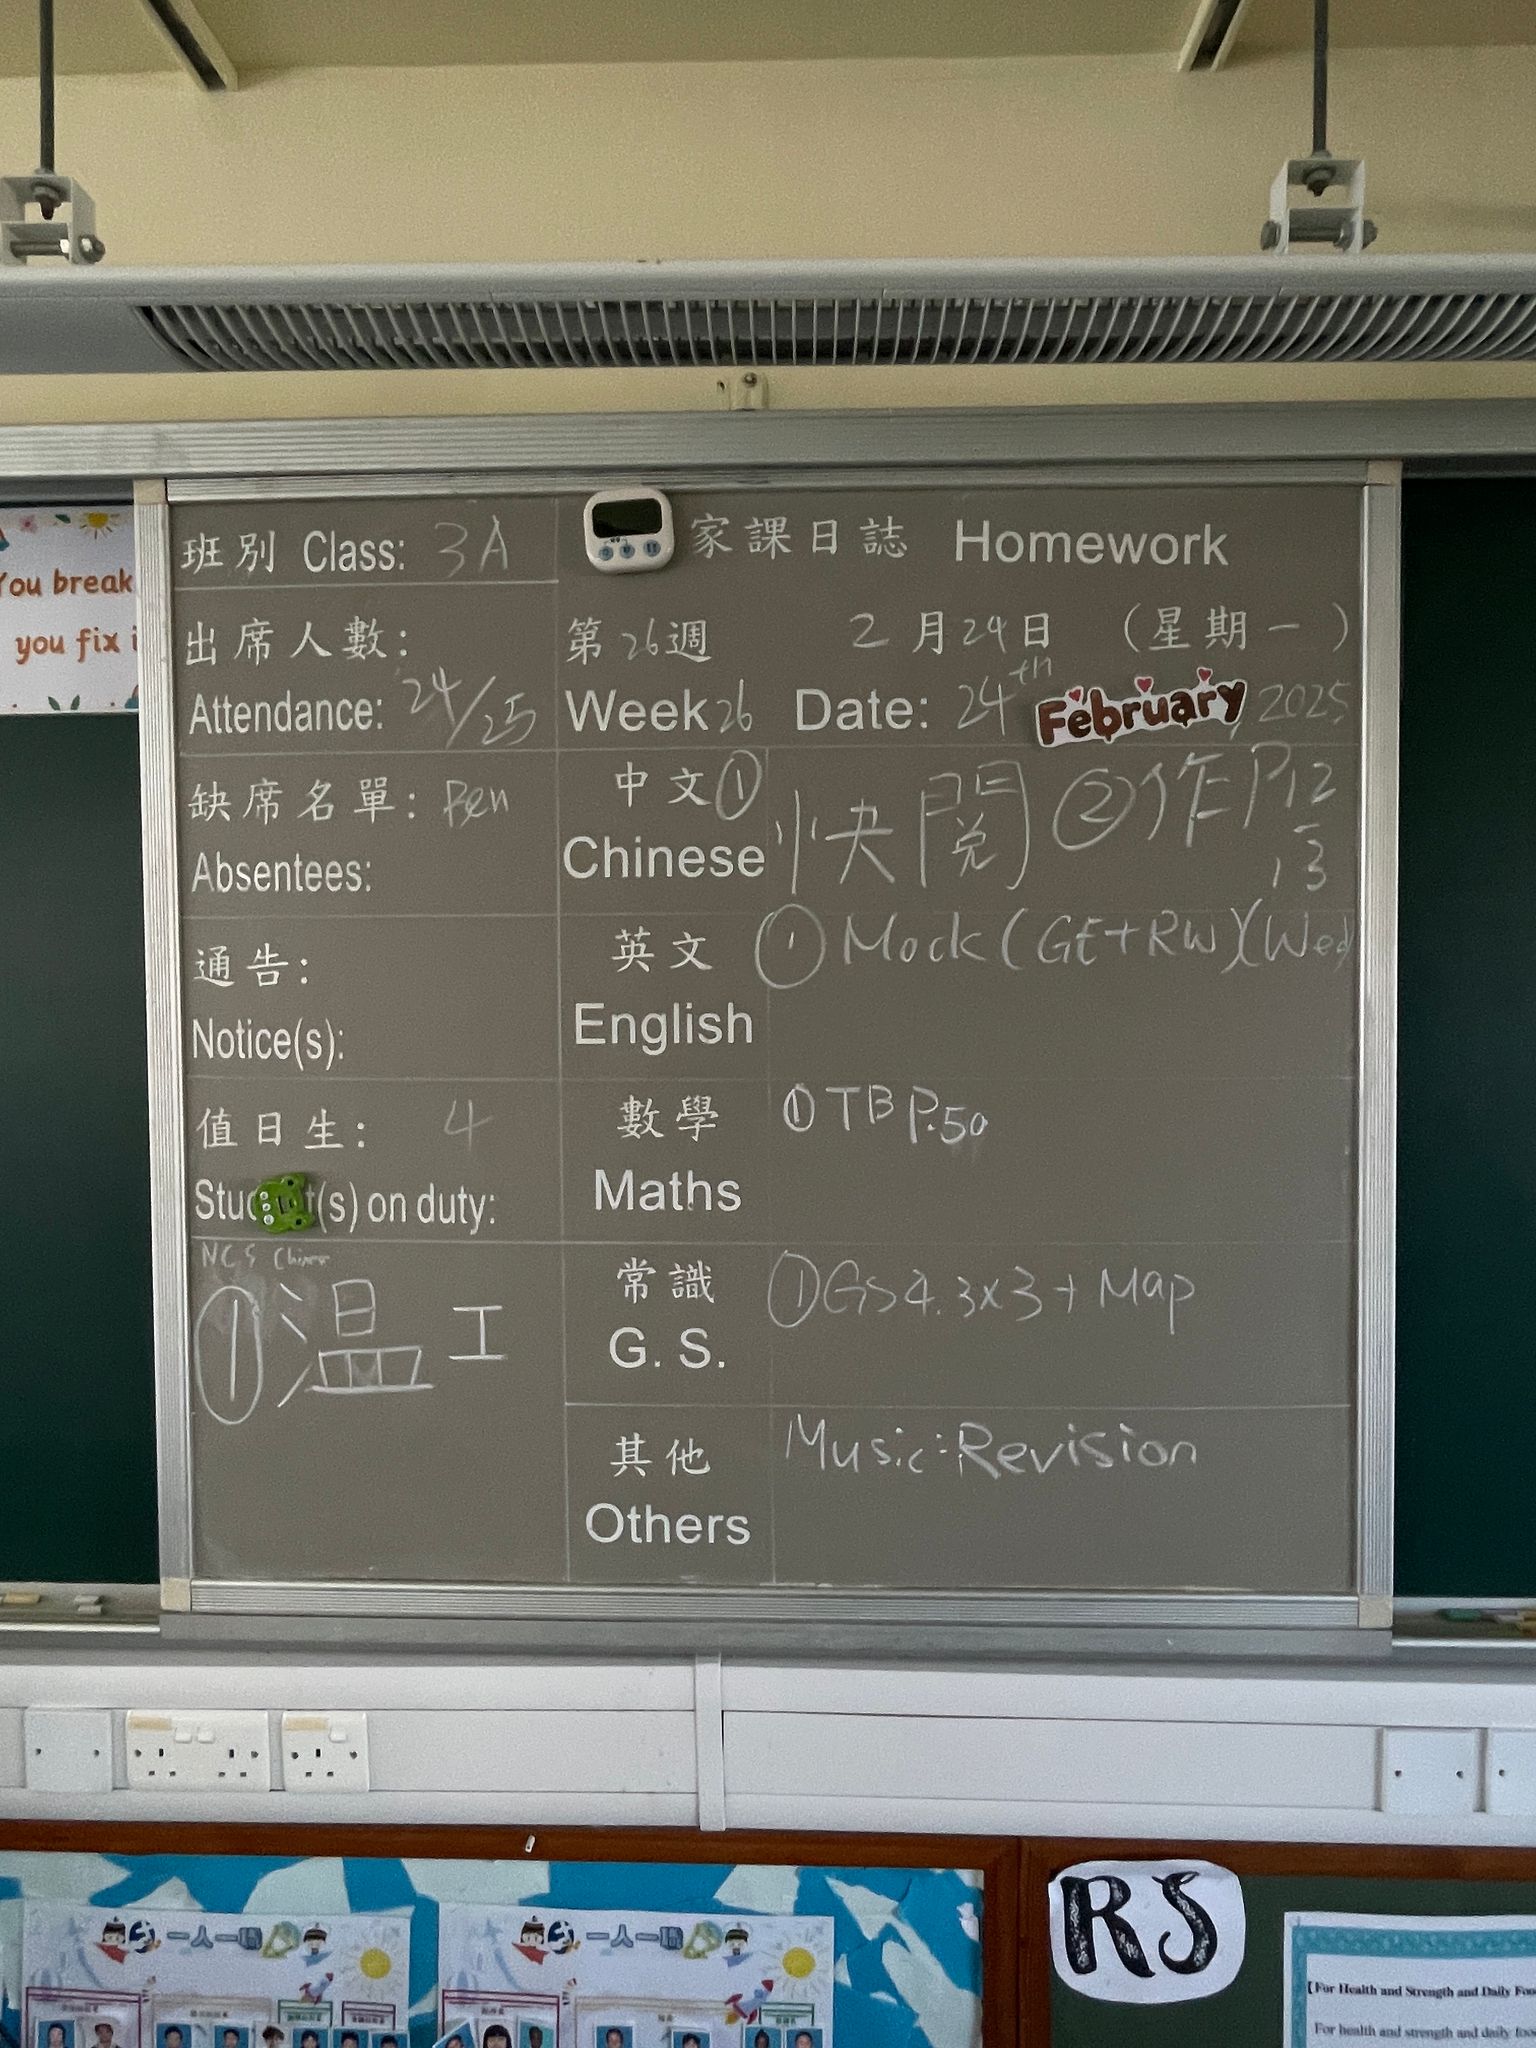 You break
you fix i
班別 Class: 3A
出席人數:
Attendance: 24/25
缺席名單: Ben
Absentees:
通告:
Notice(s):
值日生: 4
Stu t(s) on duty:
NCS Chinese
① 温工
家課日誌 Homework
第26週 2月24日 (星期一)
Week 26 Date: 24th February, 2025
中文 ① 快閱 ② 作 P.12-13
Chinese
英文 ① Mock (GE+RW) (Wed)
English
數學 ① TB P.50
Maths
常識 ① GS 4.3x3 + Map
G. S.
其他 Music: Revision
Others
一人一職
一人一職
RS
【For Health and Strength and Daily Foo
For health and strength and daily foo